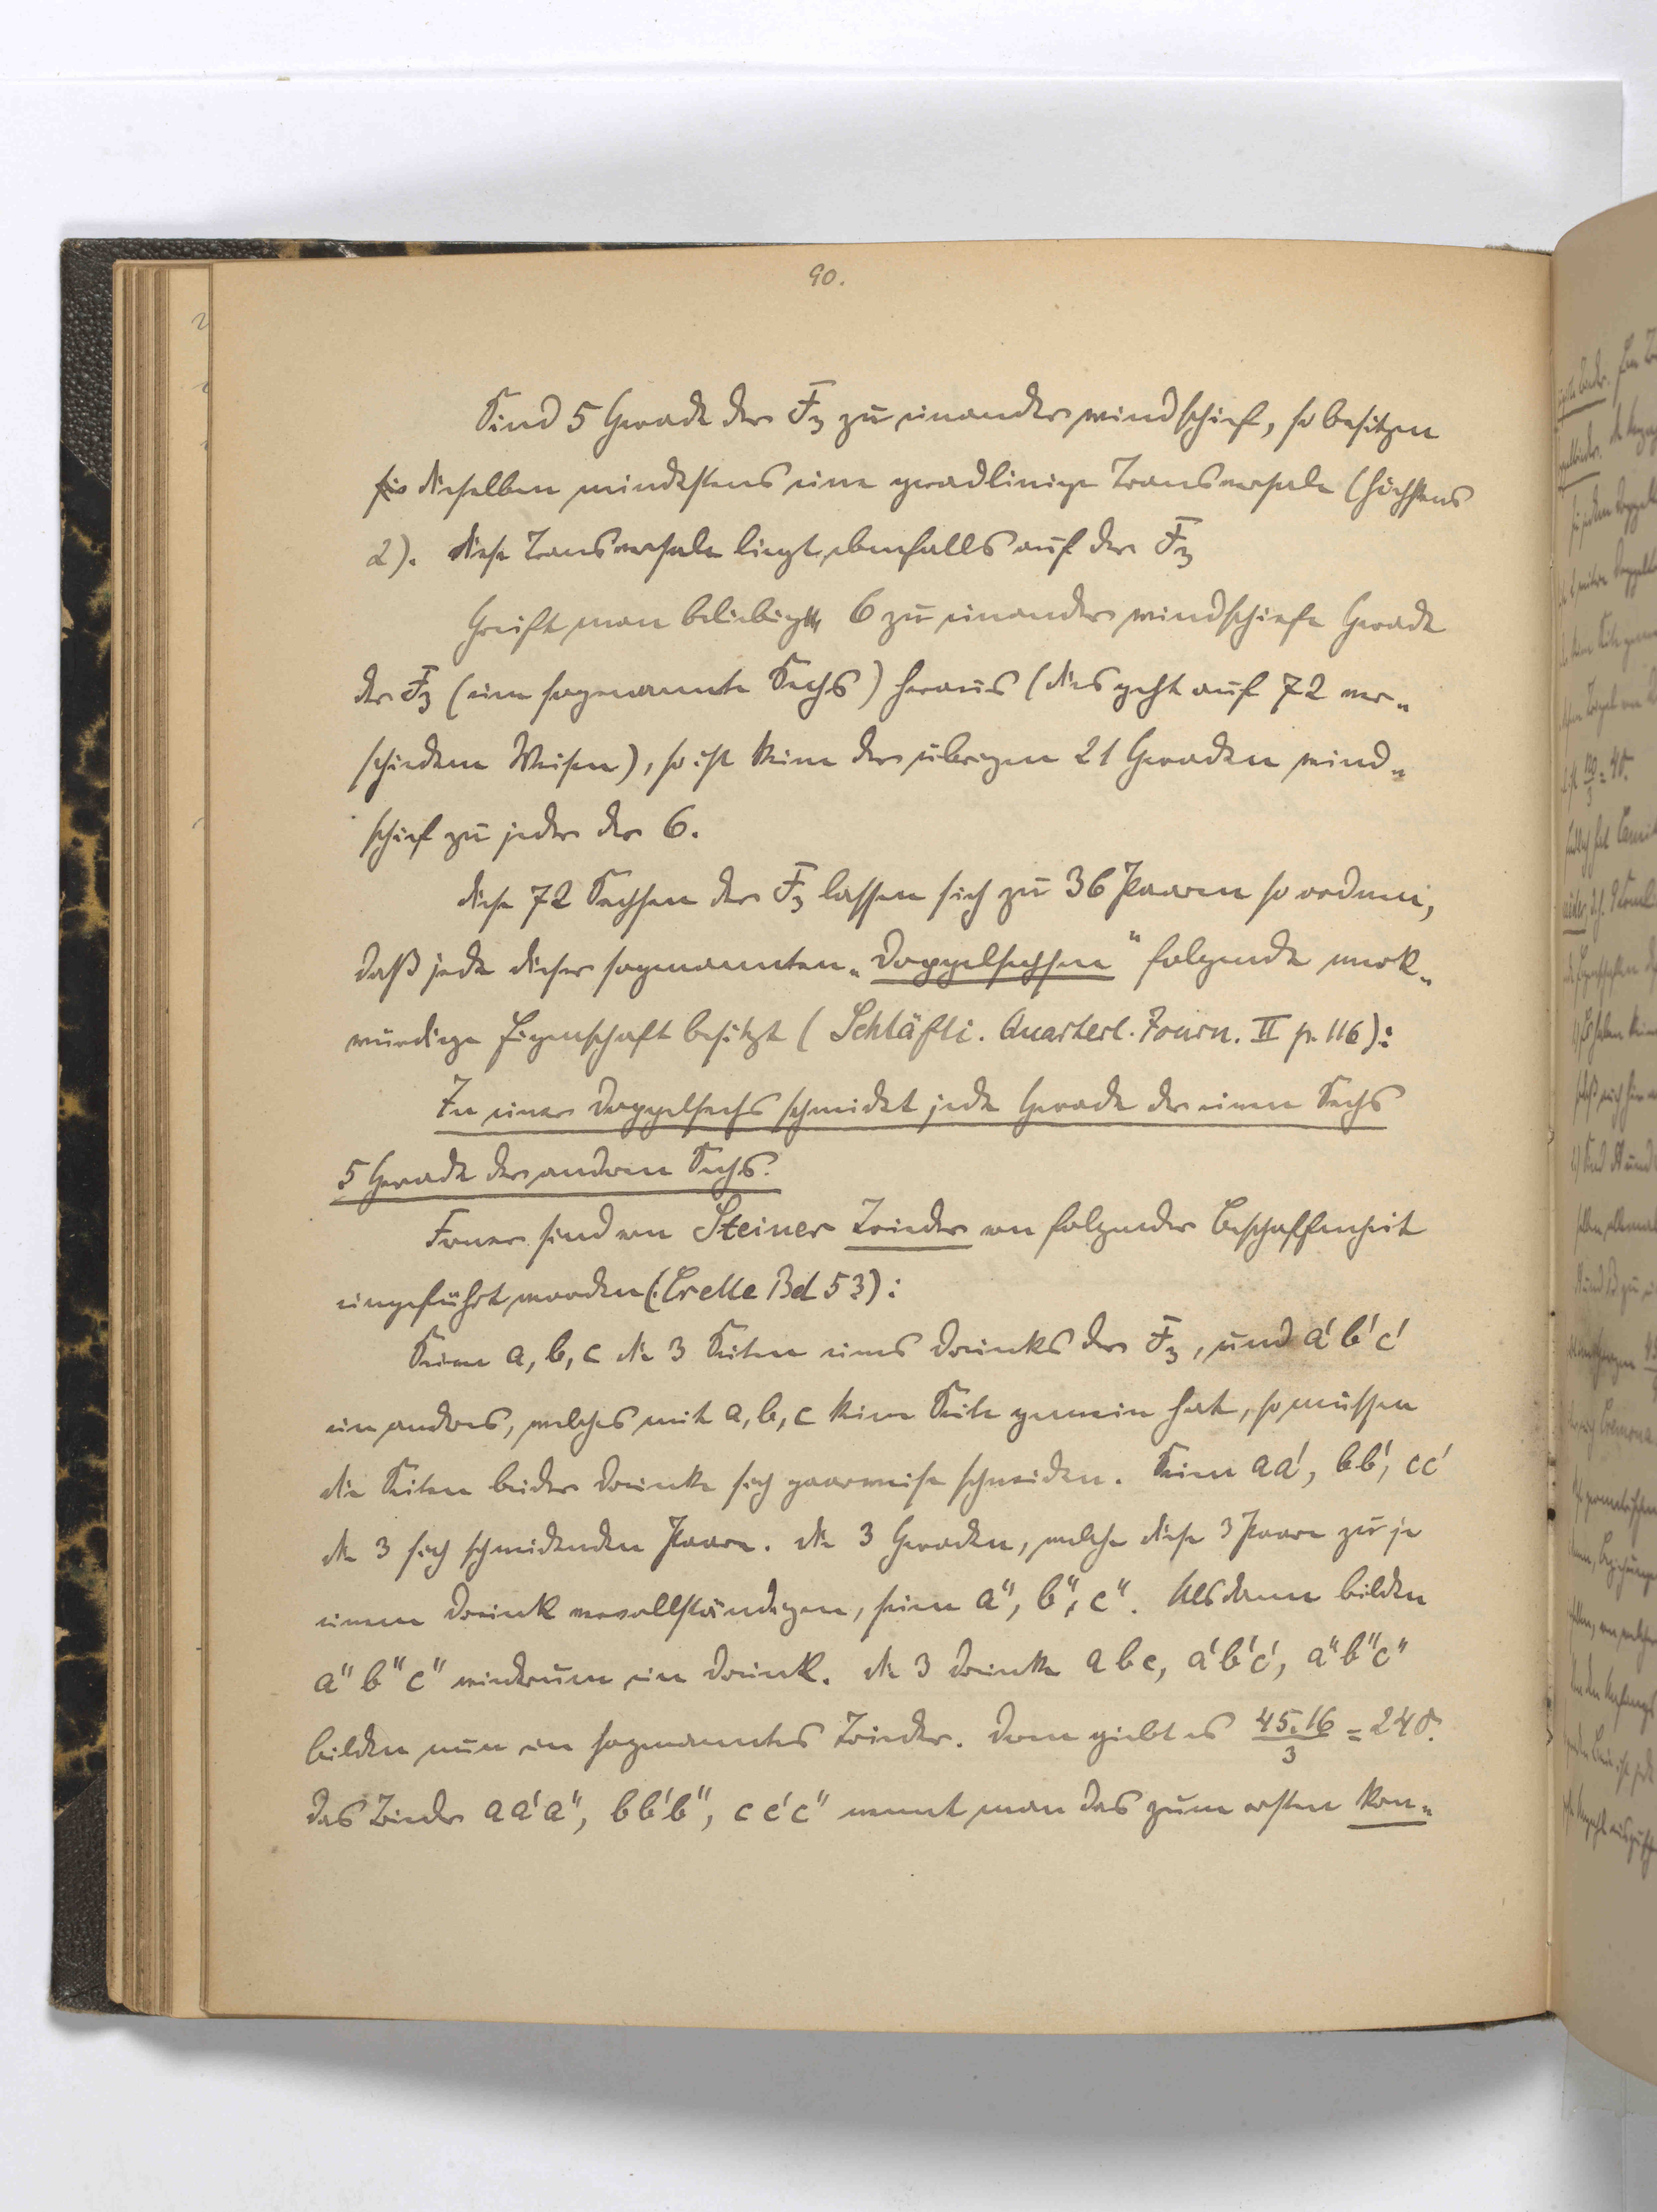 90.
Sind 5 Gerade der F₃ zu einander windschief, so besitzen
dieselben mindestens eine geradlinige Transversale (höchstens
2). Diese Transversale liegt ebenfalls auf der F₃
Greift man beliebig 6 zu einander windschiefe Gerade
der F₃ (eine sogenannte Sechs) heraus (dies geht auf 72 ver„
schiedene Weisen), so ist keine der übrigen 21 Geraden wind„
schief zu jeder der 6.
Diese 72 Sechsen der F₃ lassen sich zu 36 Paaren so ordnen,
daß jede dieser sogenannten „Doppelsechsen“ folgende merk„
würdige Eigenschaft besitzt (Schläfli. Quarterl. Journ. II p. 116):
In einer Doppelsechs schneidet jede Gerade der einen Sechs
5 Gerade der andern Sechs.
Ferner sind von Steiner Trieder von folgender Beschaffenheit
eingeführt worden (: Crelle Bd 53):
Seien a, b, c die 3 Seiten eines Dreiecks der F₃, und a' b' c'
ein anderes, welches mit a, b, c keine Seite gemein hat, so müssen
die Seiten beider Dreiecke sich paarweise schneiden. Seien aa', bb', cc'
die 3 sich schneidenden Paare. Die 3 Geraden, welche diese 3 Paare zu je
einem Dreieck vervollständigen, seien a", b", c". Alsdann bilden
a" b" c" wiederum ein Dreieck. Die 3 Dreiecke abc, a'b'c', a"b"c"
bilden nun ein sogenanntes Trieder. Deren giebt es 45.16/3 = 240.
Das Trieder aa'a", bb'b", cc'c" nennt man das zum ersten kon„